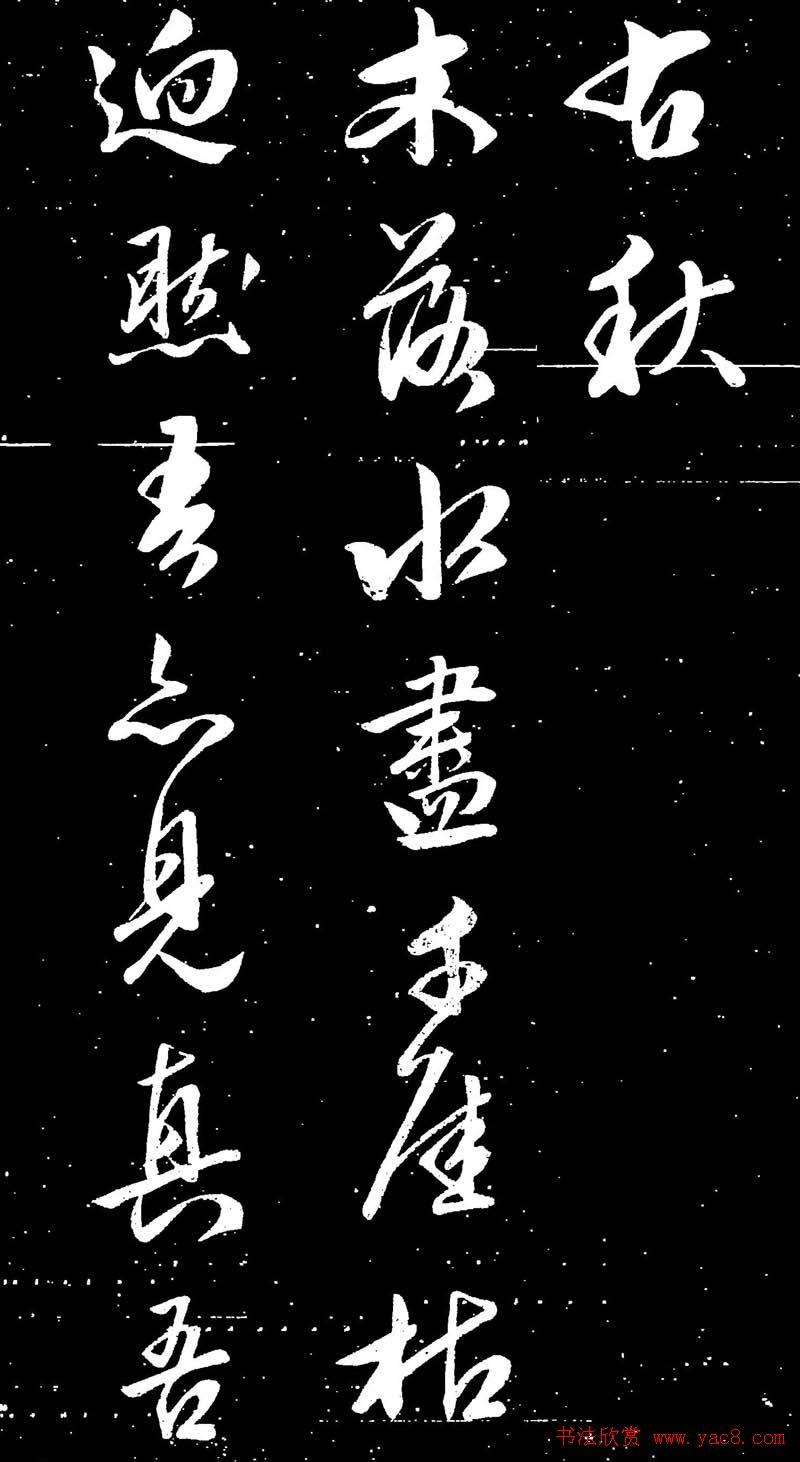 右秋
木落水盡千厓枯
逈然吾亦見真吾
书法欣赏 www.yac8.com